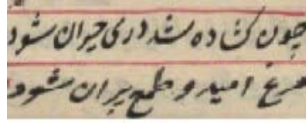 چون کشاده شد دری حیران شود
مرغ امید و طمع پران شود